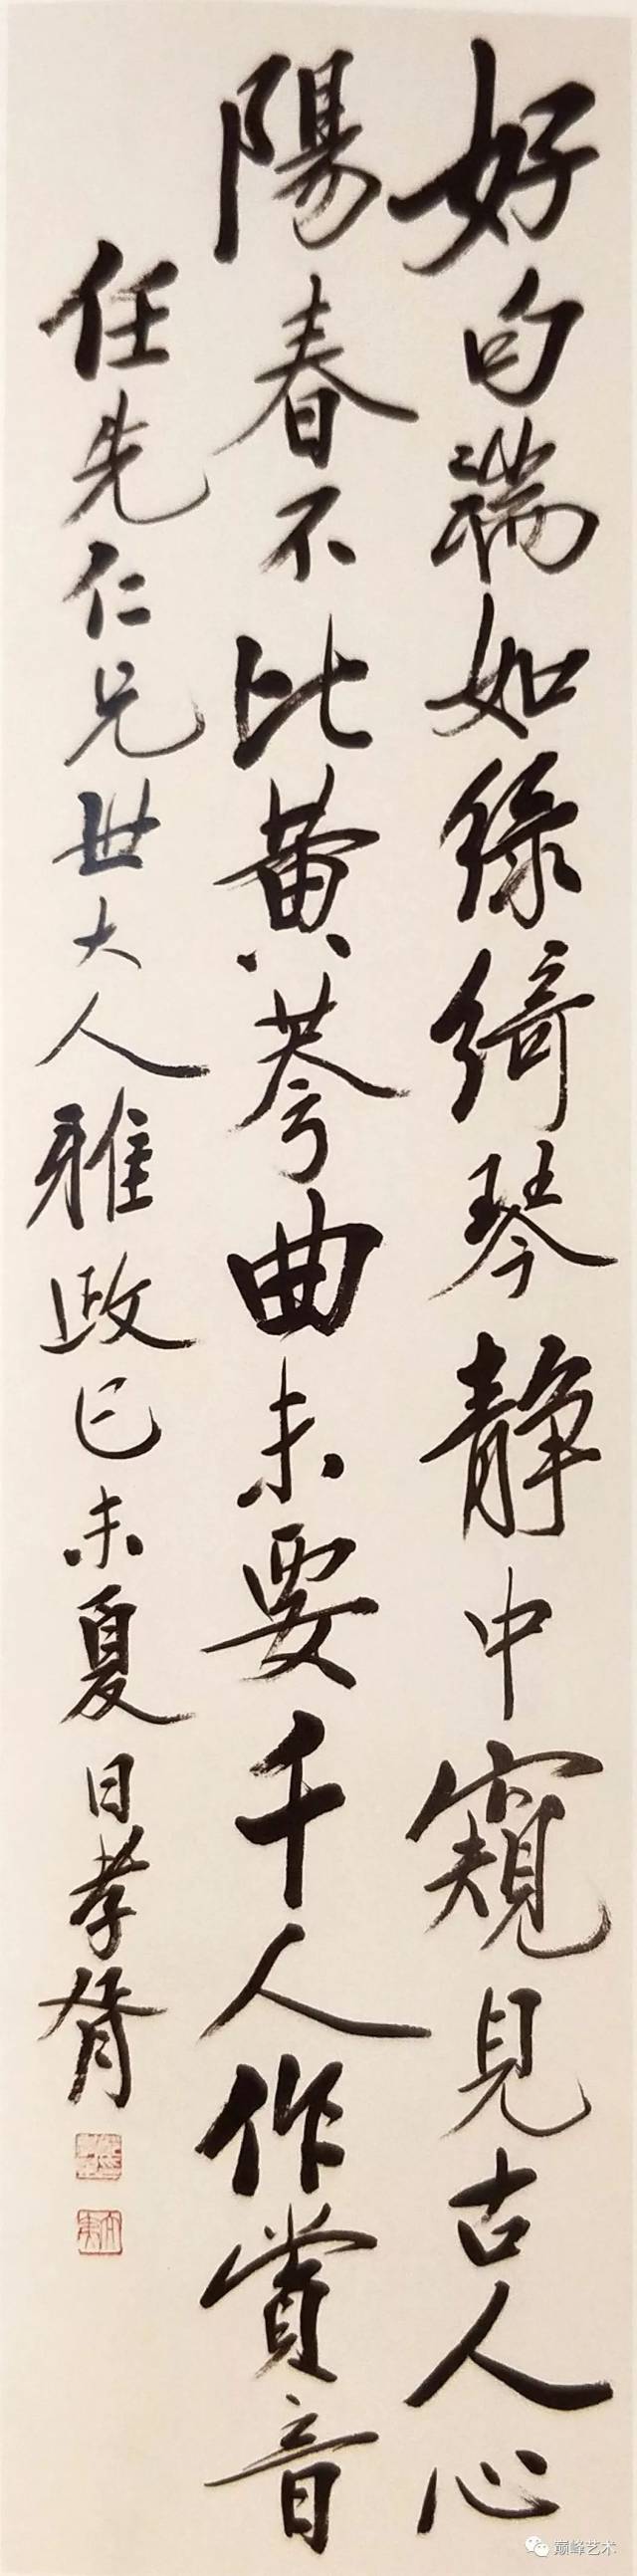 好句端如綠綺琴静中窺見古人心
陽春不比黄荂曲未要千人作賞音
任先仁兄世大人雅政己未夏日孝胥
巅峰艺术